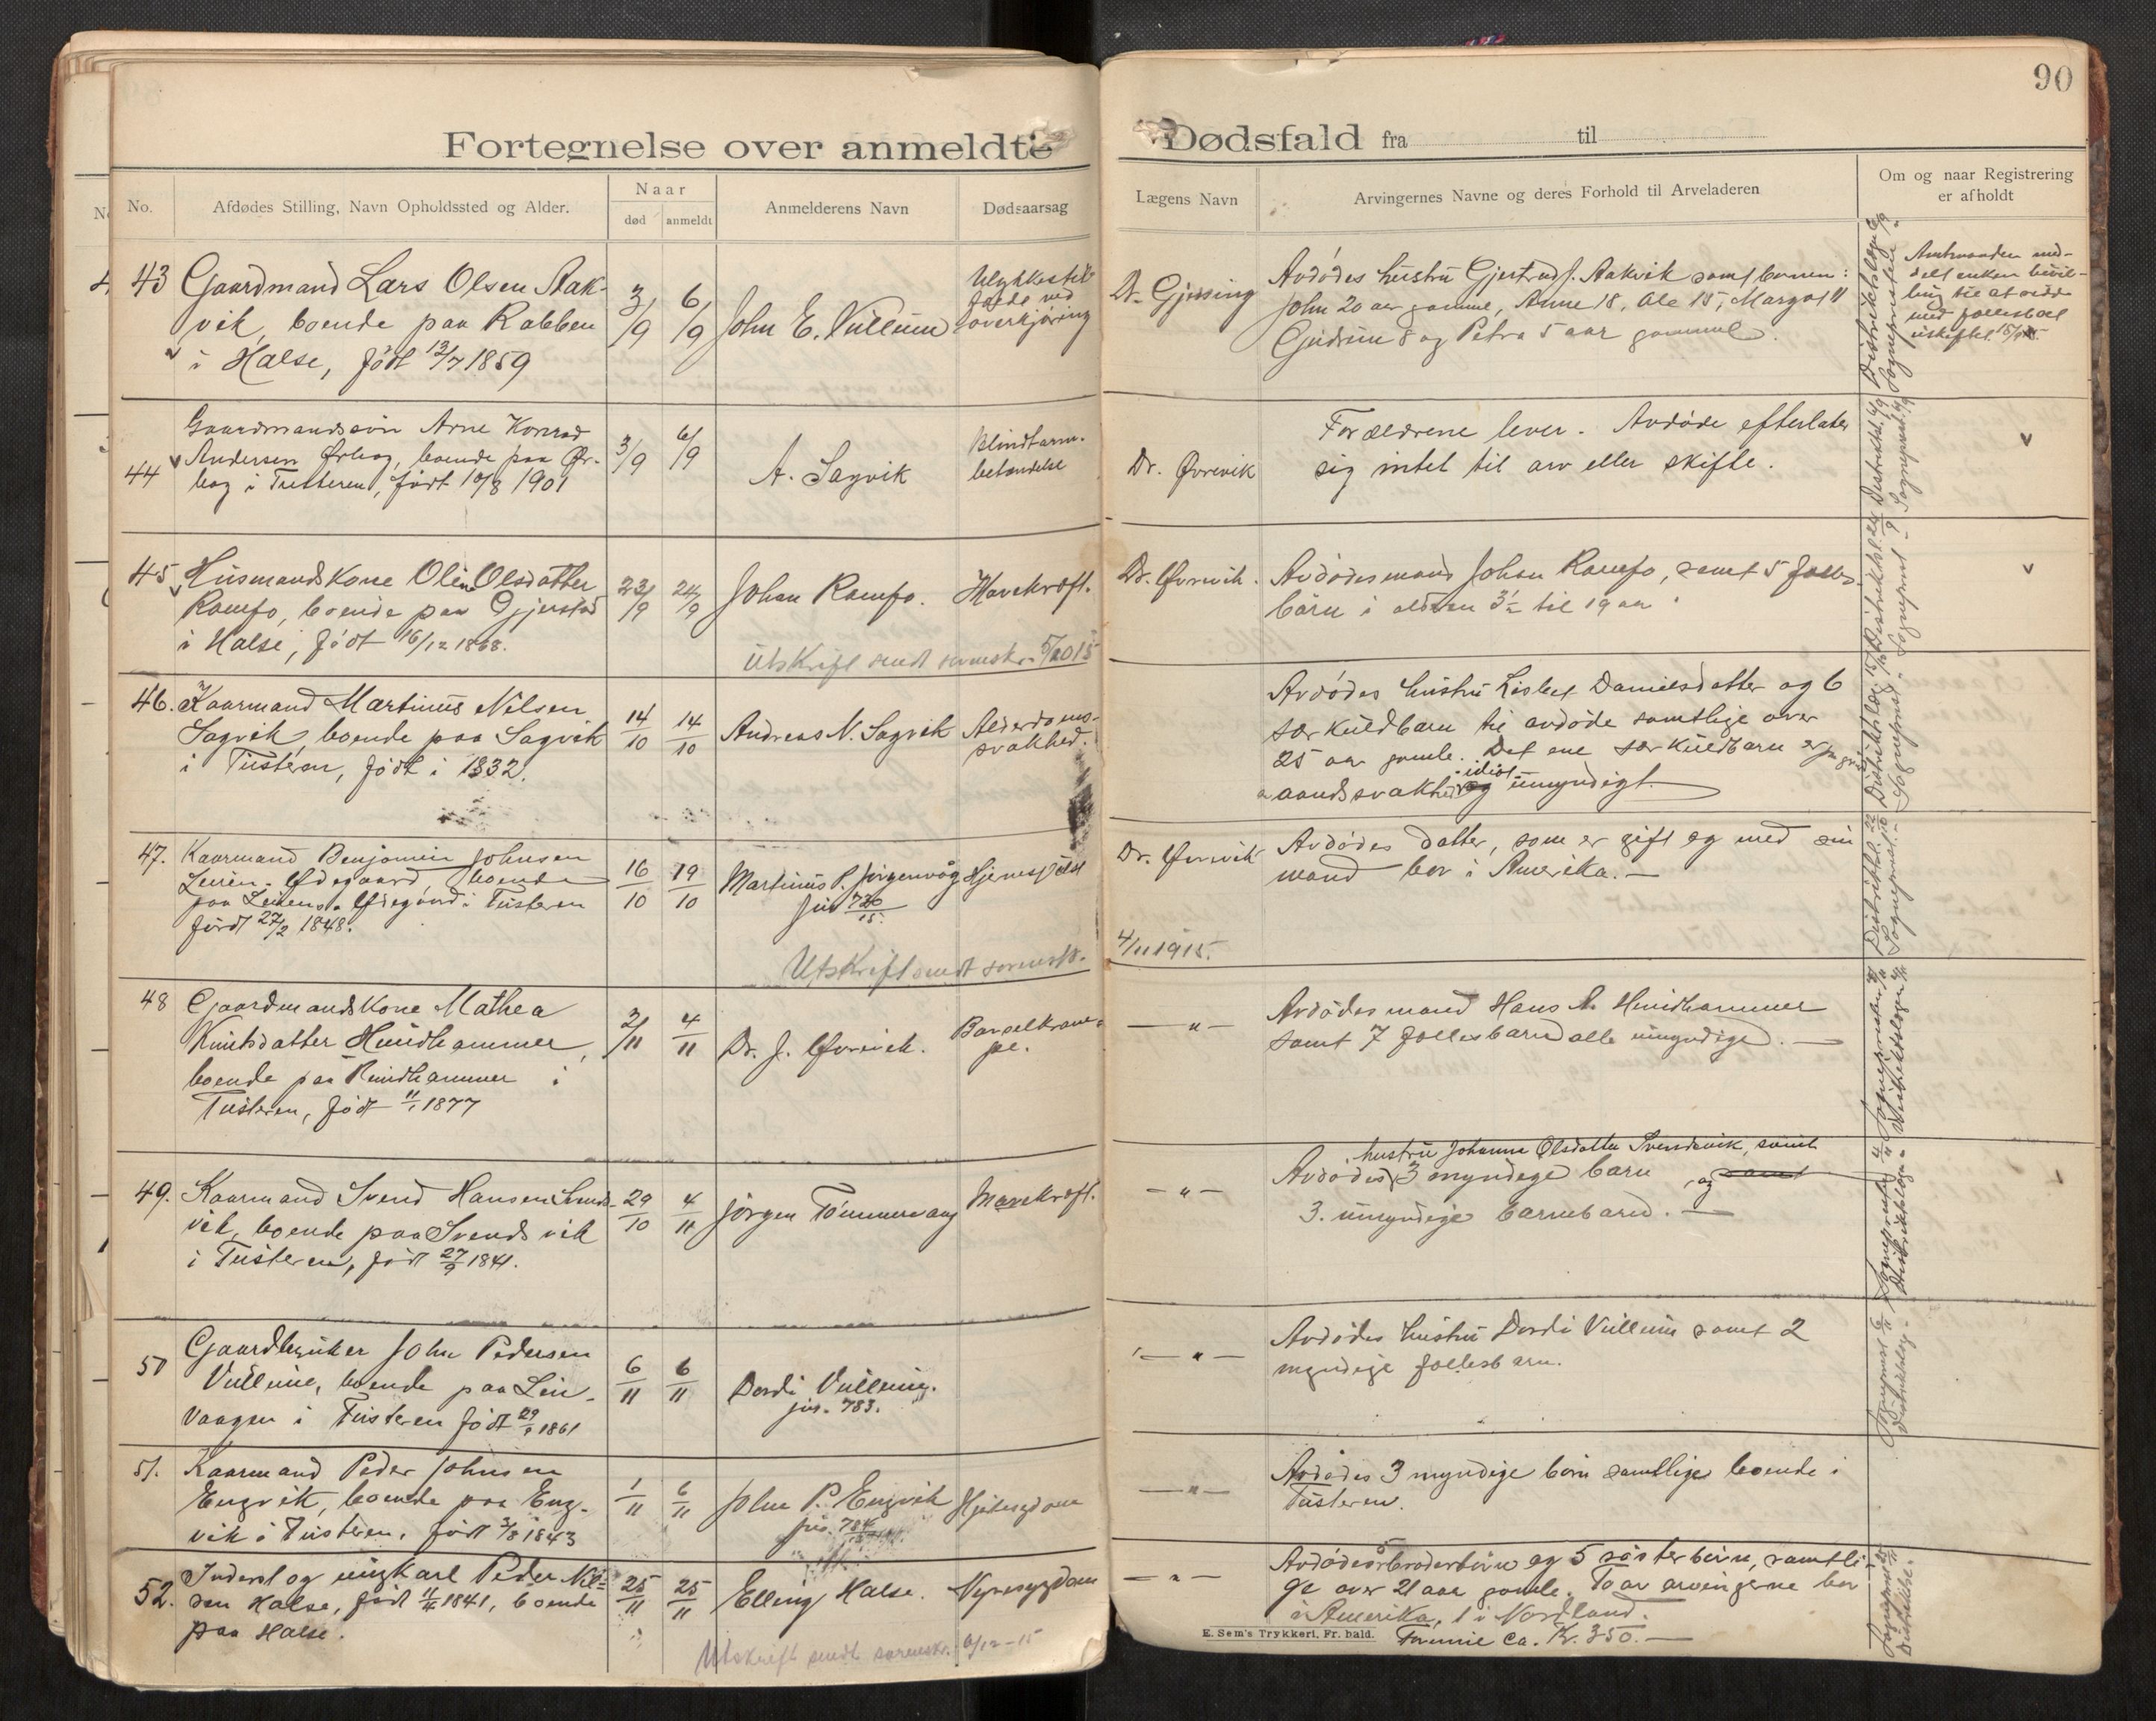 90
Fortegnelse over anmeldte Dødsfald fra til
No.
Afdødes Stilling, Navn Opholdssted og Alder.
Naar
død
anmeldt
Anmelderens Navn
Dødsaarsag
Lægens Navn
Arvingernes Navne og deres Forhold til Arveladeren
Om og naar Registrering
er afholdt
43 Gaardmand Lars Olsen Aak-
vik, boende paa Rabben
i Halse, født 13/7 1859
3/9
6/9
John E. Vullum
Ulykkestil-
fælde ved
overkjøring
Dr. Gjessing
Avdødes hustru Gjertrud J. Aakvik samt barnen:
John 20 aar gamme, Anne 18, Ole 15, Margot 11
Gudrun 8 og Petra 5 aar gammel.
Amtmanden med-
delt enken bevil-
ling til at sidde
med fællesboet
uskiftet
44
Gaardmandssøn Arne Konrad
Andersen Ørbog, boende paa Ør-
bog i Tusteren, født 10/8 1901
3/9
6/9
A. Sagvik
Blindtarm-
betændelse
Dr. Øvrevik
Forældrene lever. Avdøde efterlater
sig intet til arv eller skifte.
v
45
Husmandskone Olin Olsdatter
Ramfo, boende paa Gjerstad
i Halse, født 16/12 1868.
23/9
24/9
Johan Ramfo.
Mavekræft.
Dr. Øvrevik.
Avdødes mand Johan Ramfo, samt 5 fælles-
børn i alderen 3½ til 19 aar
v
Utskrift sendt sorenskr. 5/10 15
46. Kaarmand Martinus Nilsen
Sagvik, boende paa Sagvik
i Tusteren, født i 1832.
14/10
14/10
Andreas N. Sagvik
Alderdoms-
svakhed.
Avdødes hustru Lisbet Danielsdatter og 6
særkuldbarn til avdøde samtlige over
25 aar gamle. Det ene særkuldbarn er
aandssvak idiot umyndigt.
47. Kaarmand Benjamin Johnsen
Leiren-Ødegaard, boende
paa Leirens-Ødegaard i Tusteren
født 27/2 1848.
16/10
19/10
Martinus P. Jørgenvåg
jur 730/15.
Hjerneslag
Dr. Øvrevik
Avdødes datter, som er gift og med sin
mand bor i Amerika.—
Utskrift sendt sorenskr. 4/11 1915.
48 Gaardmandskone Mathea
Knutsdatter Hundhammer,
boende paa Hundhammer i
Tusteren, født 11/1 1877
2/11
4/11
Dr. J. Øvrevik.
Barselkram-
pe.
— " —
Avdødes mand Hans A. Hundhammer
samt 7 fællesbarn alle umyndige. —
49. Kaarmand Svend Hansen Svends-
vik, boende paa Svendsvik
i Tusteren, født 27/9 1841.
29/10
4/11
Jørgen Tømmervaag
Mavekræft.
— " —
hustru Johanna Olsdatter Svendsvik, samt
Avdødes 3 myndige barn , og samt
3. umyndige barnebarn. —
50 Gaardbruker John Pedersen
Vullum, boende paa Lein-
vaagen i Tusteren født 29/ 1861
6/11
6/11
Dordi Vullum.
jur. 783.
— " —
Avdødes hustru Dordi Vullum samt 2
myndige fællesbarn.
51. Kaarmand Peder Johnsen
Engvik, boende paa Eng-
vik i Tusteren. født 3/8 1843
1/11
6/11
John P. Engvik
jur. 784
Hjertesygdom
— " —
Avdødes 3 myndige børn samtlige boende i
Tusteren.
52. Inderst og ungkarl Peder Nil-
sen Halse, født 11/11 1841, boende
paa Halse.
25/11
25/11
Elling Halse.
Nyresygdom
— " —
Avdødes broderbørn og 5 søsterbørn, samtli-
ge over 21 aar gamle. To av arvingerne bor
i Amerika, 1 i Nordland.
Formue ca. Kr. 350.—
Utskrift sendt sorenskr. 6/12-15
E. Sem's Trykkeri, Fr. bald.